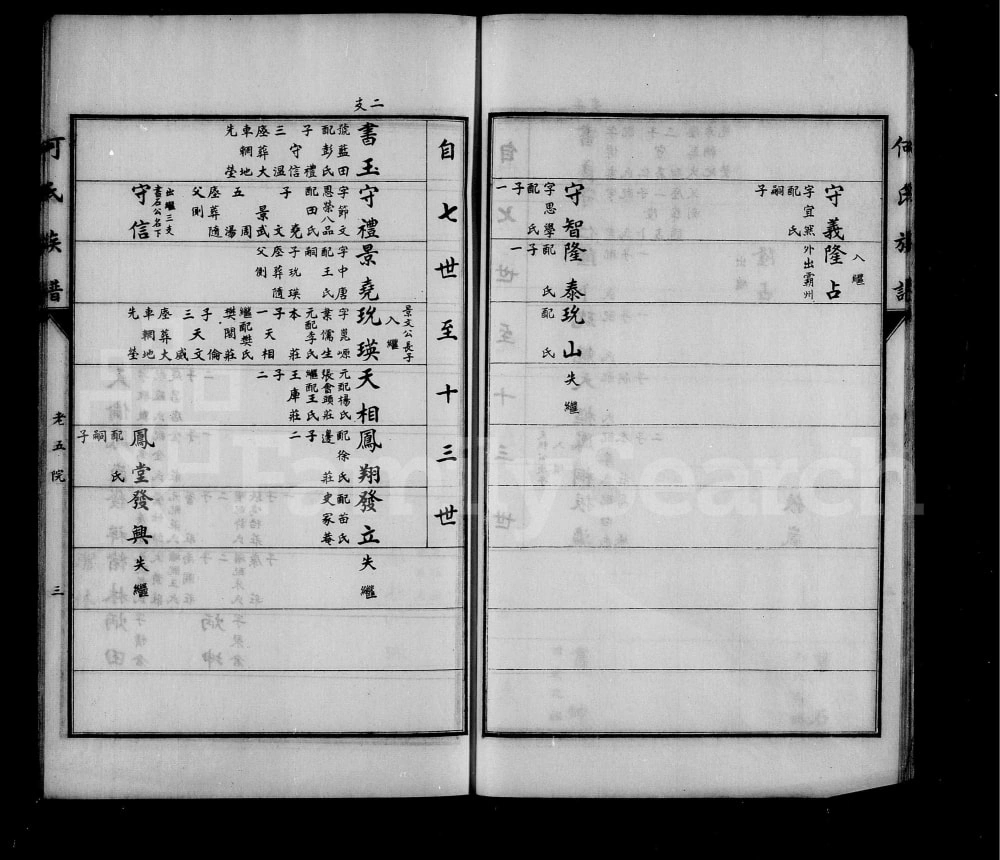 何氏族譜
守義
字宜然
配　氏
嗣子
入繼
隆占
外出霸州
守智
字思學
配　氏
子一
隆泰
配　氏
子一
玧山
配　氏
失繼
二支
自七世至十三世
書玉
號藍田
配彭氏
子三
守禮
信
溫
座葬大
車輞地
先塋
守禮
字節文
恩榮八品
配田氏
子五
景堯
文
武
周
湯
座葬隨
父側
守信
出繼三支
書石公名下
景堯
字中唐
配王氏
嗣子玧瑛
座葬隨
父側
景文公長子
入繼
玧瑛
業儒生
元配李氏
本莊
子一天相
繼配樊氏
樊閣莊
子三
天倫
文
威
座葬大
車輞地
先塋
天相
元配楊氏
張會頭莊
繼配王氏
王庫莊
子二
鳳翔
配徐氏
邊莊
子二
鳳堂
配　氏
嗣子
發立
配苗氏
史家菴
失繼
發興
失繼
何氏族譜
老五院
三
FamilySearch